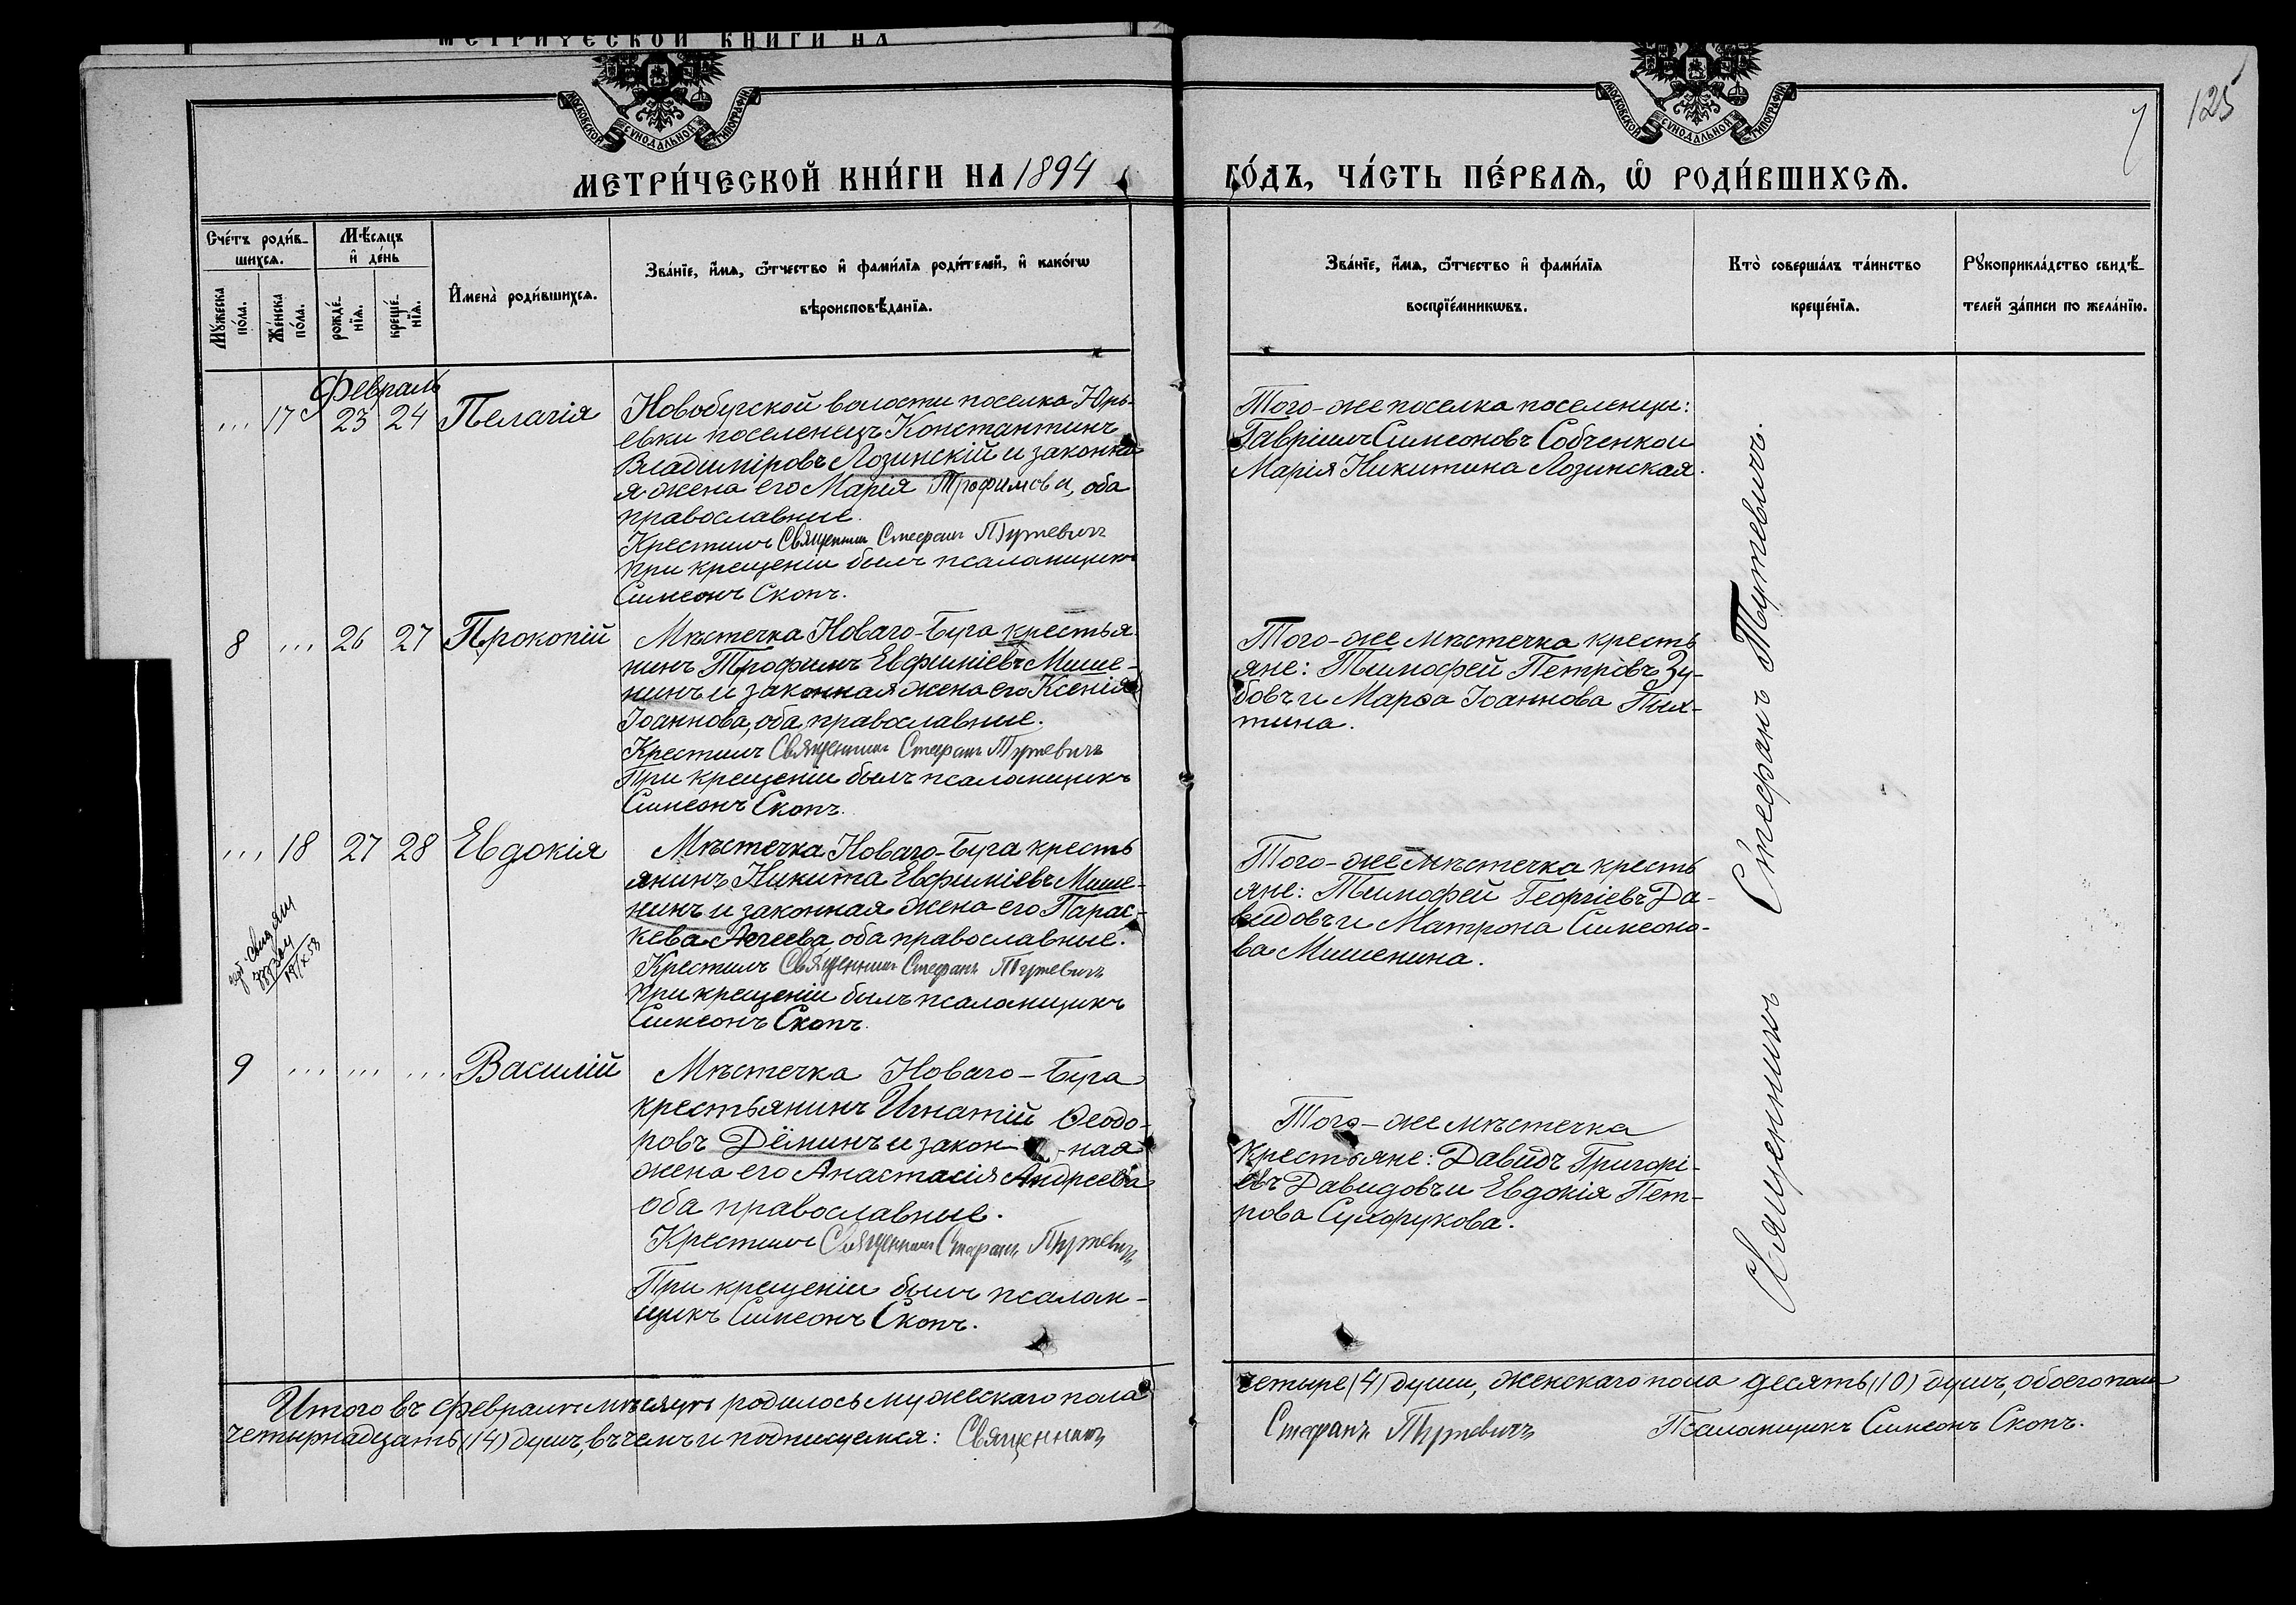 МЕТРИЧЕСКОЙ КНИГИ НА
МОСКОВСКОЙ СѴНОДАЛЬНОЙ ТИПОГРАФІИ
МОСКОВСКОЙ СѴНОДАЛЬНОЙ ТИПОГРАФІИ
125
7
МЕТРИ́ЧЕСКОЙ КНИ́ГИ НА 1894
ГО́ДЪ, ЧА́СТЬ ПЕ́РВАѦ, Ѡ РОДИ́ВШИХСѦ.
Сче́тъ роди́в-
шихсѧ.
Мꙋжеска
по́ла.
Же́нска
по́ла.
Мѣ́сѧцъ
и҆ де́нь
рожде́-
нїѧ.
креще́-
нїѧ.
И҆мена̀ роди́вшихсѧ.
Зва́нїе, и҆́мѧ, ѻ҆́тчество и҆ фами́лїѧ роди́телей, и҆ како́гѡ
вѣроисповѣ́данїѧ.
Зва́нїе, и҆́мѧ, ѻ҆́тчество и҆ фами́лїѧ
воспрїе́мникѡвъ.
Кто̀ соверша́лъ та́инство
креще́нїѧ.
Рꙋкоприкла́дство свидѣ́-
телей за́писи по жела́нїю.
Февраль
... 17 23 24 Пелагія
Новобугской волости поселка Юрь-
евки поселенецъ Константинъ
Владиміровъ Лозинскій и законна
я жена его Марія Трофимова, оба
православные.
Крестилъ Священникъ Стефанъ Путевичъ
При крещеніи былъ псаломщикъ
Симеонъ Скопъ.
Того-же поселка поселенцы:
Гавріилъ Симеоновъ Собченко и
Марія Никитина Лозинская.
8 ... 26 27 Прокопій
Мѣстечка Новаго-Буга крестья
нинъ Трофимъ Евфиміевъ Мише-
нинъ и законная жена его Ксенія
Іоаннова, оба православные.
Крестилъ Священникъ Стефанъ Путевичъ
При крещеніи былъ псаломщикъ
Симеонъ Скопъ.
Того-же мѣстечка кресть
яне: Тимофей Петровъ Зу-
бовъ и Марѳа Іоаннова Пых-
тина.
... 18 27 28 Евдокія
Мѣстечка Новаго-Буга кресть
янинъ Никита Евфиміевъ Мише-
нинъ и законная жена его Парас-
кева Аггеева, оба православные.
Крестилъ Священникъ Стефанъ Путевичъ
При крещеніи былъ псаломщикъ
Симеонъ Скопъ.
Того-же мѣстечка кресть
яне: Тимофей Георгіевъ Да-
видовъ и Матрона Симеоно-
ва Мишенина.
9 ... ... ... Василій
Мѣстечка Новаго-Буга
крестьянинъ Игнатій Ѳеодо-
ровъ Дёминъ и закон-ная
жена его Анастасія Андреева
оба православные.
Крестилъ Священникъ Стефанъ Путевичъ
При крещеніи былъ псалом-
щикъ Симеонъ Скопъ.
Того-же мѣстечка
крестьяне: Давидъ Григорі-
евъ Давидовъ и Евдокія Пет-
рова Сунфукова.
Священникъ Стефанъ Путевичъ.
Итого въ Февралѣ мѣсяцѣ родилось мужескаго пола
четыре (4) души, женскаго пола десять (10) душъ, обоего пола
четырнадцать (14) душъ, въ чемъ и подписуемся: Священникъ
Стефанъ Путевичъ Псаломщикъ Симеонъ Скопъ.